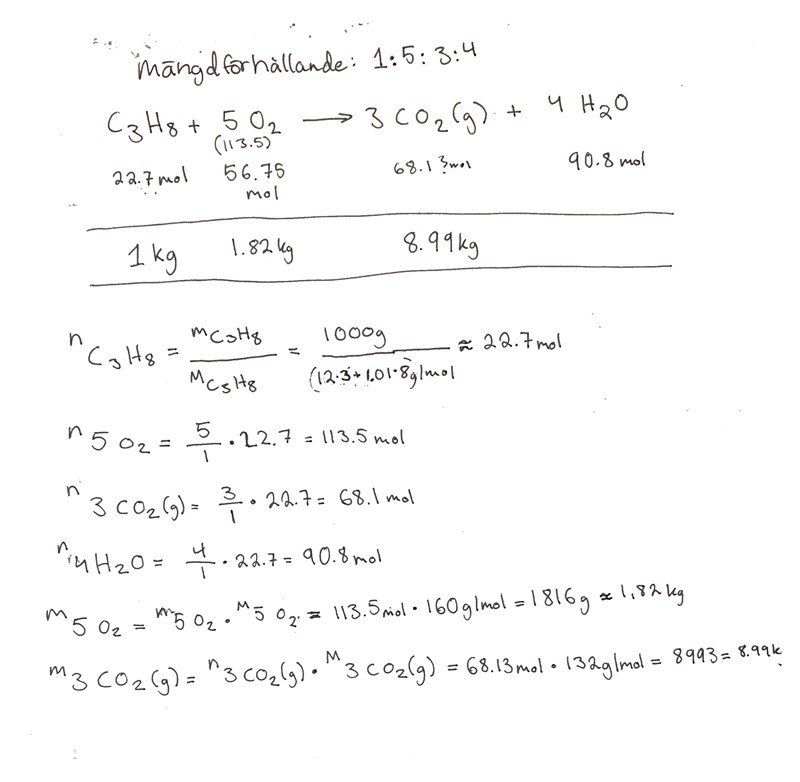 Mängdförhållande: 1:5:3:4
C₃H₈ + 5 O₂ → 3 CO₂(g) + 4 H₂O
(113.5)
22.7 mol 56.75 mol 68.13 mol 90.8 mol
1 kg 1.82 kg 8.99 kg
n C₃H₈ = mC₃H₈ / MC₃H₈ = 1000g / (12·3+1.01·8g/mol ≈ 22.7 mol
n 5 O₂ = 5/1 · 22.7 = 113.5 mol
n 3 CO₂(g) = 3/1 · 22.7 = 68.1 mol
n 4 H₂O = 4/1 · 22.7 = 90.8 mol
m 5 O₂ = m 5 O₂ · M 5 O₂ = 113.5 mol · 160 g/mol = 1816 g ≈ 1,82 kg
m 3 CO₂(g) = n 3 CO₂(g) · M 3 CO₂(g) = 68.13 mol · 132 g/mol = 8993 = 8.99k